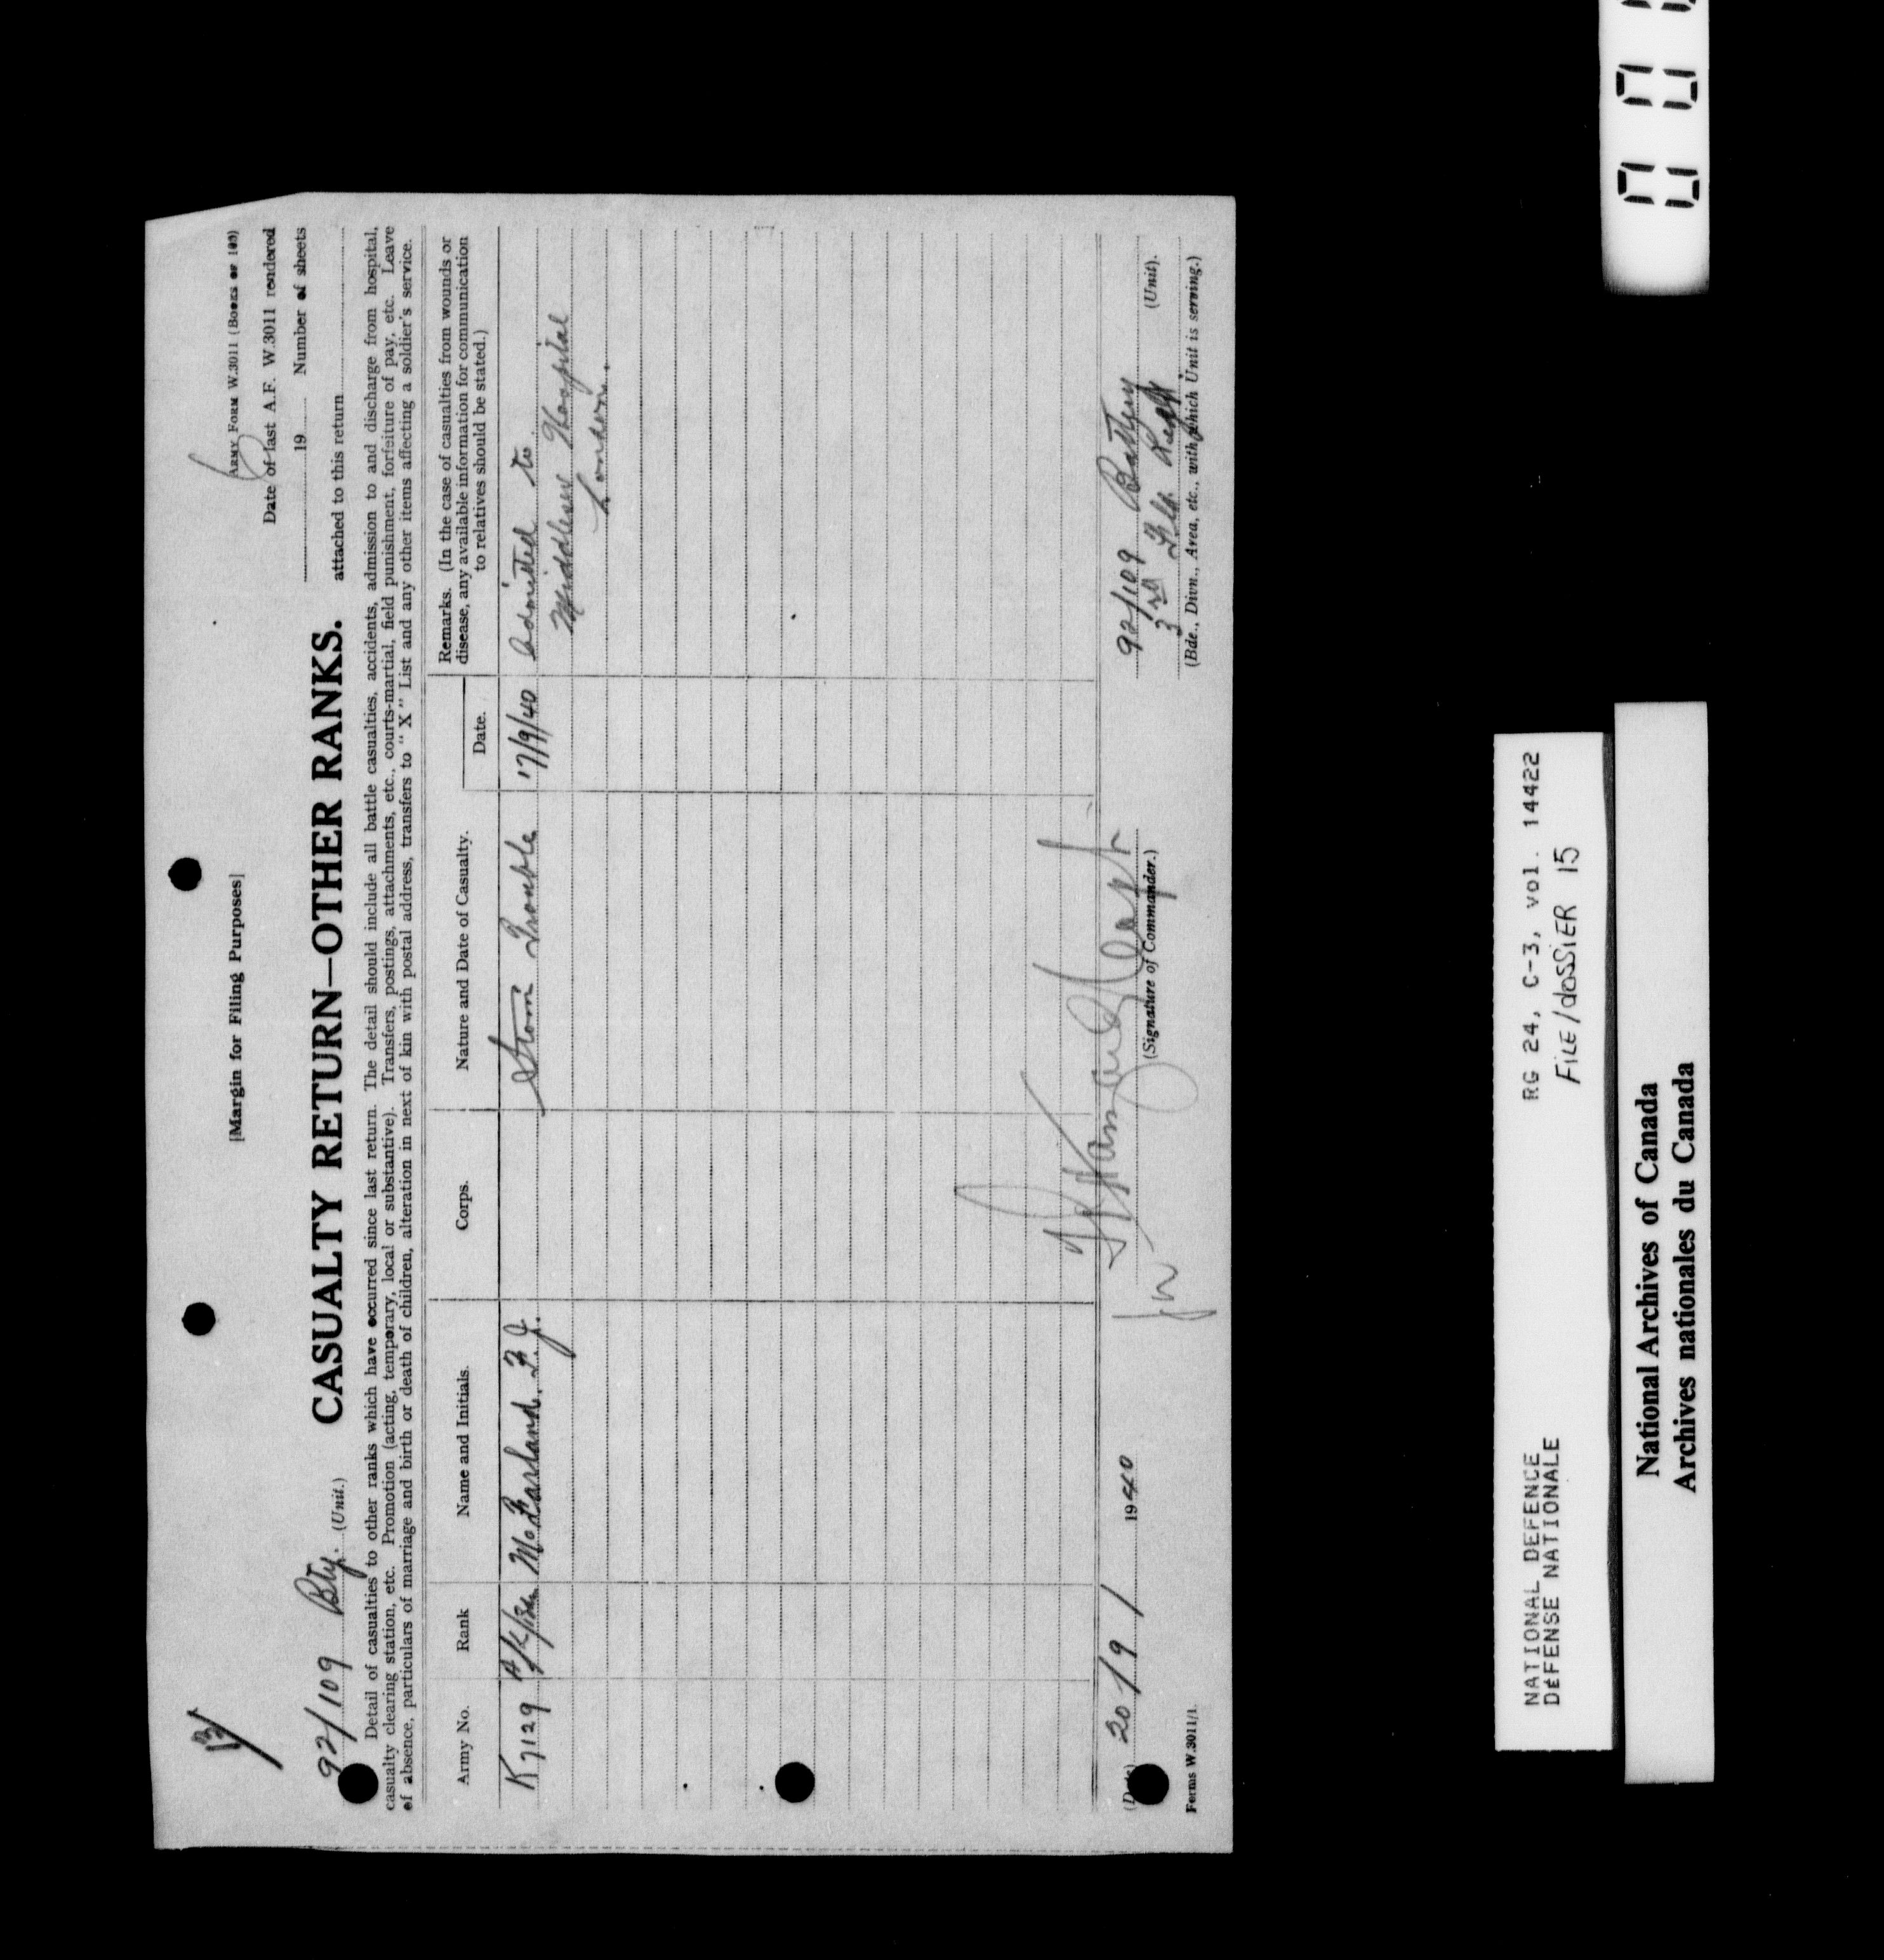 ARMY FORM W.3011 (Books of 100)
[Margin for Filing Purposes]
Date of last A.F. W.3011 rendered
19 Number of sheets
attached to this return
92/109 Bty. (Unit.)
CASUALTY RETURN—OTHER RANKS.
Detail of casualties to other ranks which have occurred since last return. The detail should include all battle casualties, accidents, admission to and discharge from hospital,
casualty clearing station, etc. Promotion (acting, temporary, local or substantive). Transfers, postings, attachments, etc., courts-martial, field punishment, forfeiture of pay, etc. Leave
of absence, particulars of marriage and birth or death of children, alteration in next of kin with postal address, transfers to “ X ” List and any other items affecting a soldier's service.
Army No. Rank Name and Initials. Corps. Nature and Date of Casualty. Date. Remarks. (In the case of casualties from wounds or
disease, any available information for communication
to relatives should be stated.)
K7129 McFarland. F.J. Stom Trouble 17/9/40 Admitted to
Middlesex Hospital
London.
(Date) 20/9/ 1940
for
(Signature of Commander.)
92/109 Battery (Unit).
3rd Fld. Regt.
(Bde., Divn., Area, etc., with which Unit is serving.)
Forms W.3011/1.
NATIONAL DEFENCE RG 24, C-3, vol. 14422
DÉFENSE NATIONALE FILE/dossier 15
National Archives of Canada
Archives nationales du Canada